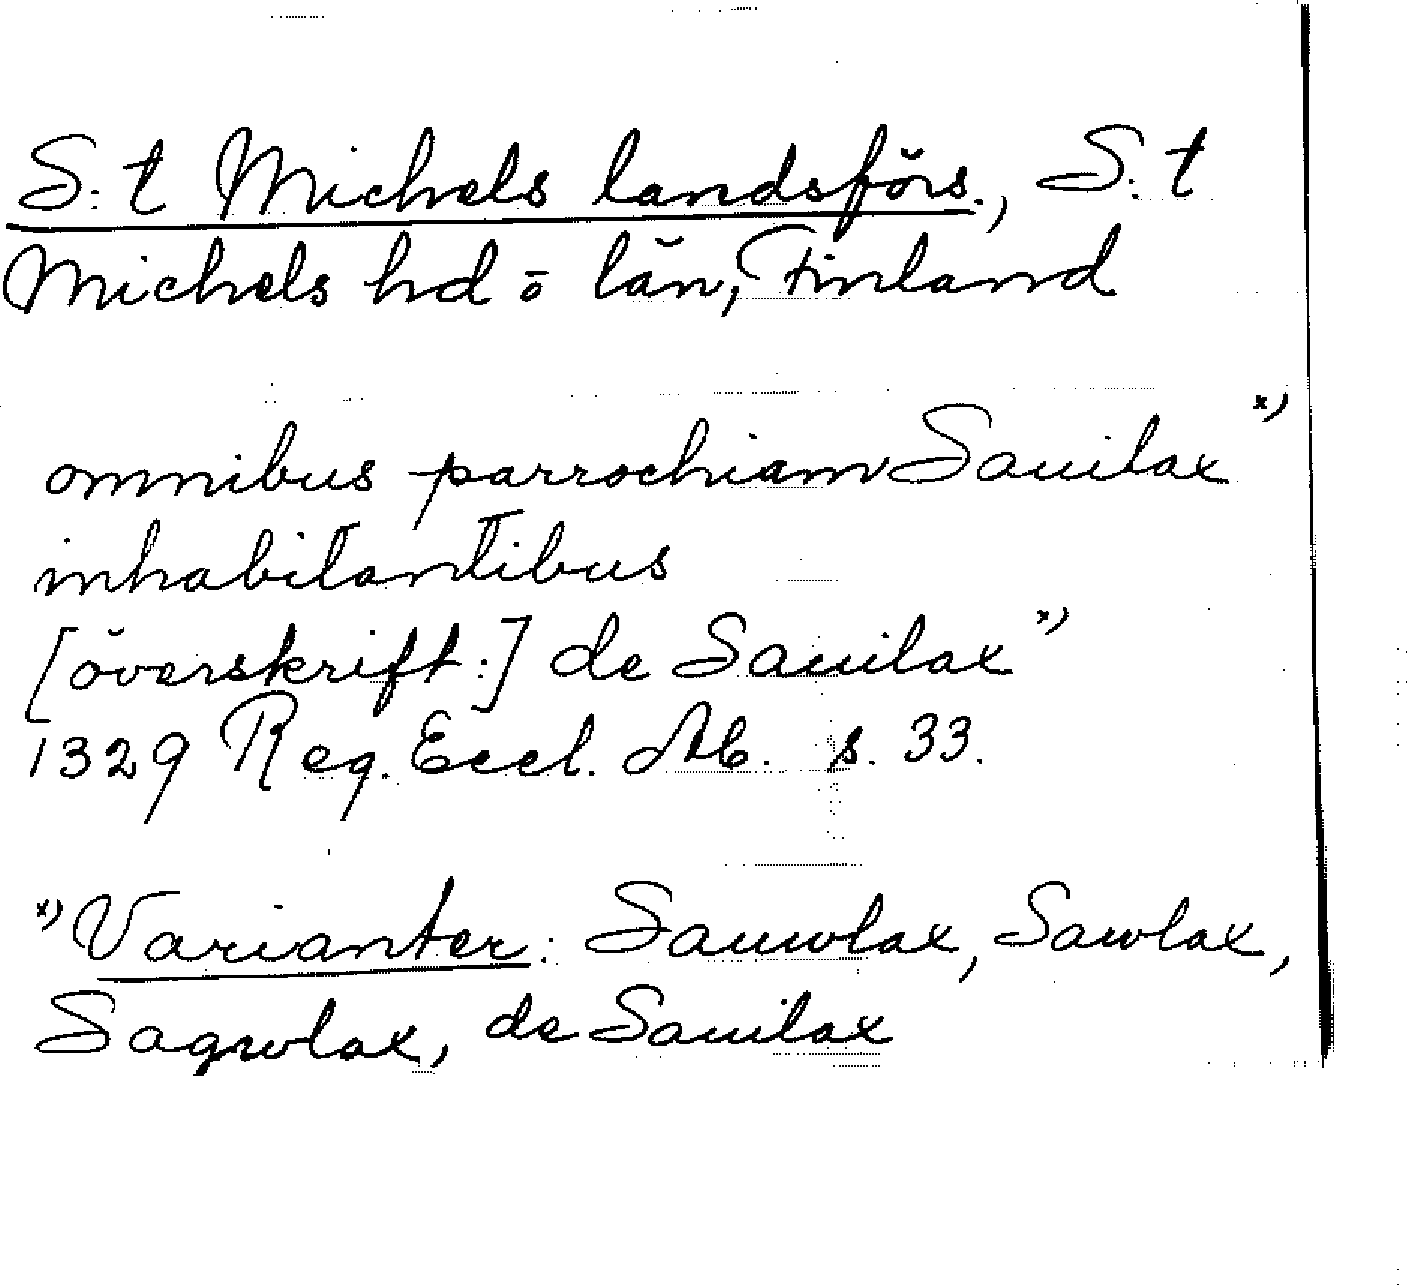 S:t Michels landsförs., S:t
Michels hd o län, Finland
omnibus parrochiam Sauilax x)
inhabitantibus
[överskrift:] de Sauilax x)
1329 Reg. Eccl. Ab. s. 33.
x) Varianter: Sauwlax, Sawlax,
Sagwlax, de Sauilax